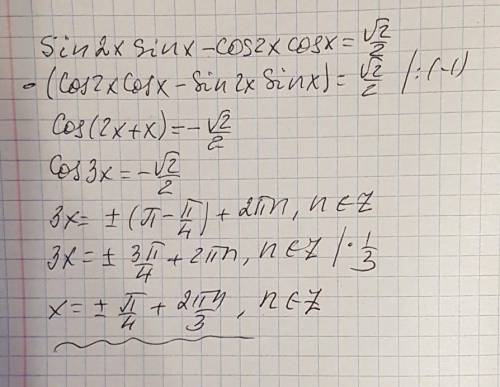 sin2x sinx - cos2x cosx = √2/2
-(cos2x cosx - sin2x sinx) = √2/2 /:(-1)
cos(2x+x) = -√2/2
cos3x = -√2/2
3x = ±(π - π/4) + 2πn, n∈Z
3x = ± 3π/4 + 2πn, n∈Z /· 1/3
x = ± π/4 + 2πn/3, n∈Z